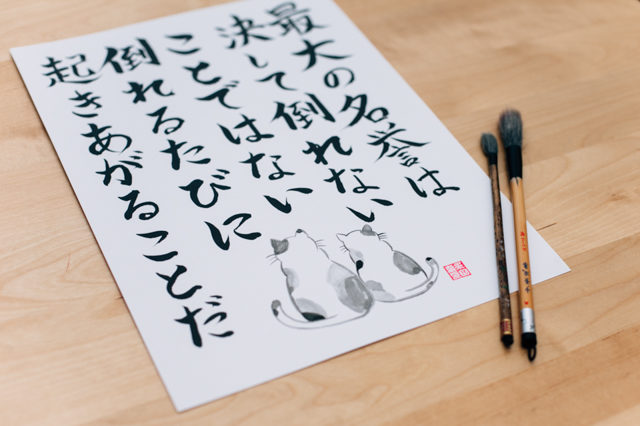 最大の名誉は
決して倒れない
ことではない
倒れるたびに
起きあがることだ